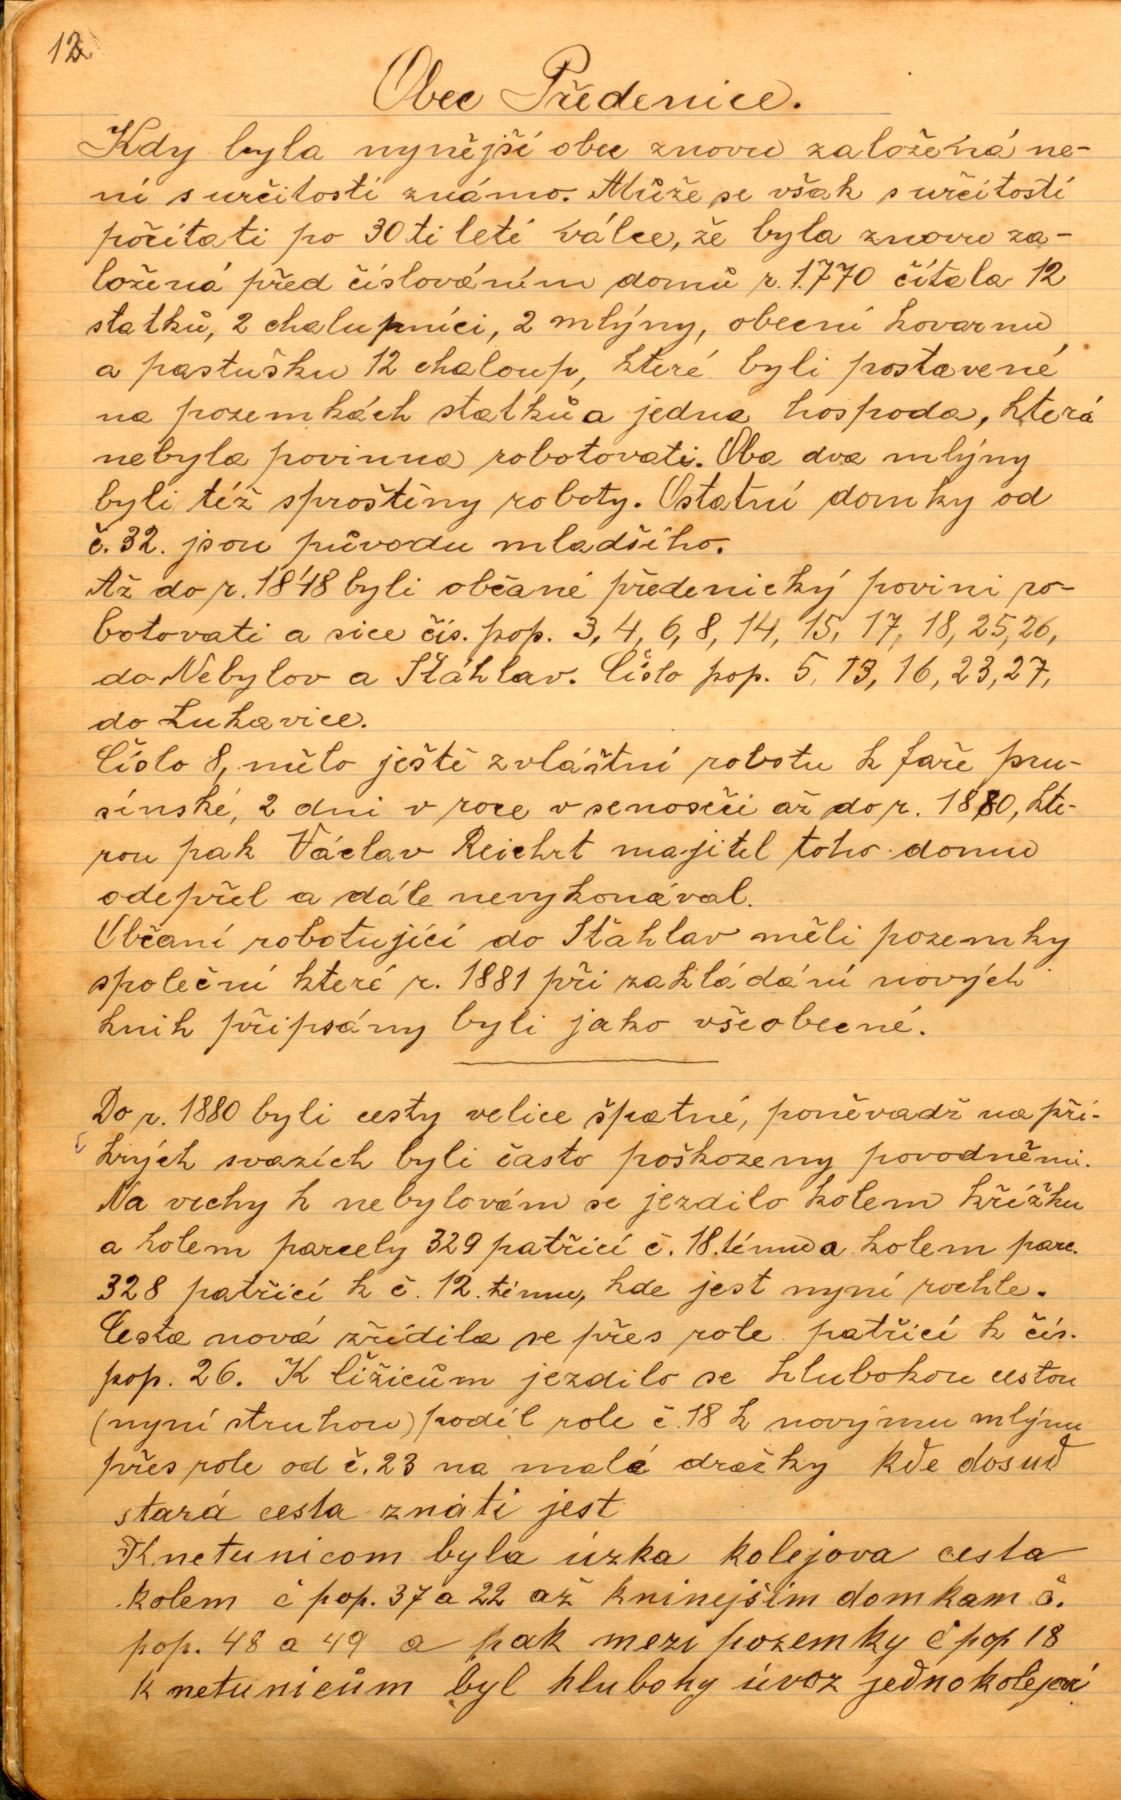 12
Obec Předenice.
Kdy byla nynější obec znovu založená ne-
ní s určitostí známo. Může se však s určitostí
počítati po 30ti leté válce, že byla znovu za-
ložená před číslováním domů r. 1770 čítala 12
statků, 2 chalupníci, 2 mlýny, obecní kovarnu
a pastušku 12 chaloup, které byli postavené
na pozemkách statků a jedna hospoda, která
nebyla povinna robotovati. Oba dva mlýny
byli též sproštěny roboty. Ostatní domky od
č. 32. jsou původu mladšího.
Až do r. 1848 byli občané předenický povini ro-
botovati a sice čís. pop. 3, 4, 6, 8, 14, 15, 17, 18, 25, 26,
do Nebylov a Šťáhlav. Číslo pop. 5, 13, 16, 23, 27,
do Lukavice.
Číslo 8, mělo ještě zvláštní robotu k faře pru-
sínské, 2 dni v roce v senoseči až do r. 1880, kte-
rou pak Václav Reichrt majitel toho domu
odepřel a dále nevykonával.
Občaní robotující do Šťáhlav měli pozemky
společní které r. 1881 při zakládání nových
knih připsány byli jako všeobecné.
Do r. 1880 byli cesty velice špatné, poněvadž na pří-
krých svazích byli často poškozeny povodněmi.
Na vrchy k nebylovám se jezdilo kolem křížku
a kolem parcely 329 patřící č. 18. témuž a kolem parc.
328 patřící k č. 12. témuž, kde jest nyní rochle.
Cesta nová zřídila se přes role patřící k čís.
pop. 26. K lížicům jezdilo se hlubokou cestou
(nyní struhou) podél role č. 18 k novýmu mlýnu
přes role od č. 23 na malé dražky kde dosud
stará cesta znáti jest
K netunicom byla úzka kolejova cesta
kolem č pop. 37 a 22 až k ninejším domkam č.
pop. 48 a 49 a pak mezi pozemky č pop 18
k netunicům byl hluboky úvoz jednokolejní